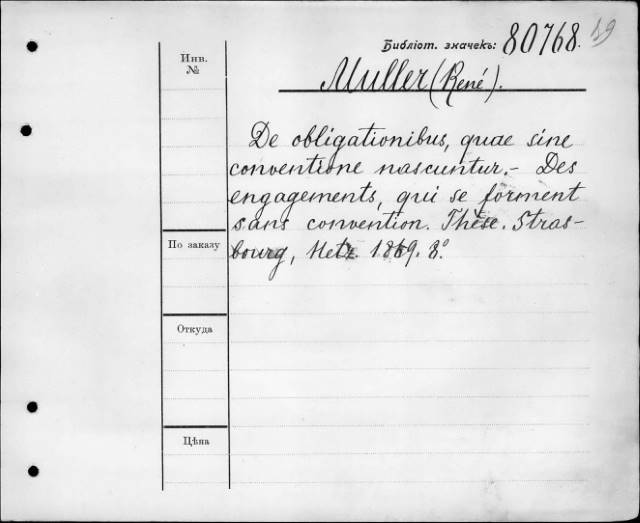 Библіот. значекъ: 80768. 19
Инв.
№
Muller (René).
De obligationibus, quae sine
conventione nascuntur. - Des
engagements, qui se forment
sans convention. Thèse. Stras-
По заказу
bourg, Metz. 1869. 8º.
Откуда
Цѣна